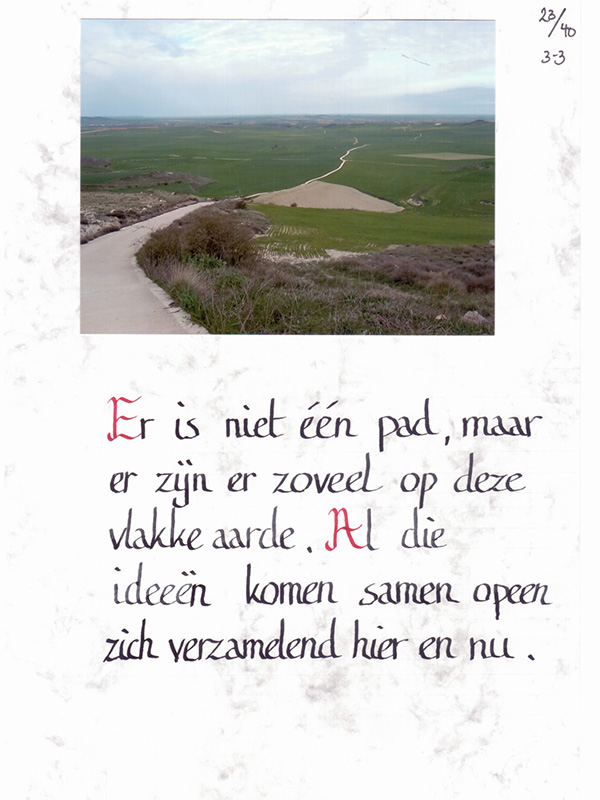 23/40
3-3
Er is niet één pad, maar
er zijn er zoveel op deze
vlakke aarde. Al die
ideeën komen samen opeen
zich verzamelend hier en nu.